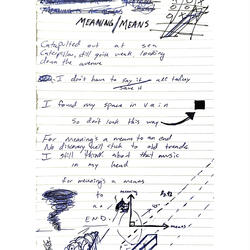 MEANING/MEANS
Catapulted out at sea
Caterpillar, still quite weak, landing
down the avenue
I don't have to say it all today
save it
I found my space in vain
So don't look this way
For meaning's a means to an end
No stick to old trends
I still "think" about that music
in my head
for meaning's a means
to
an
END.
meaning
means